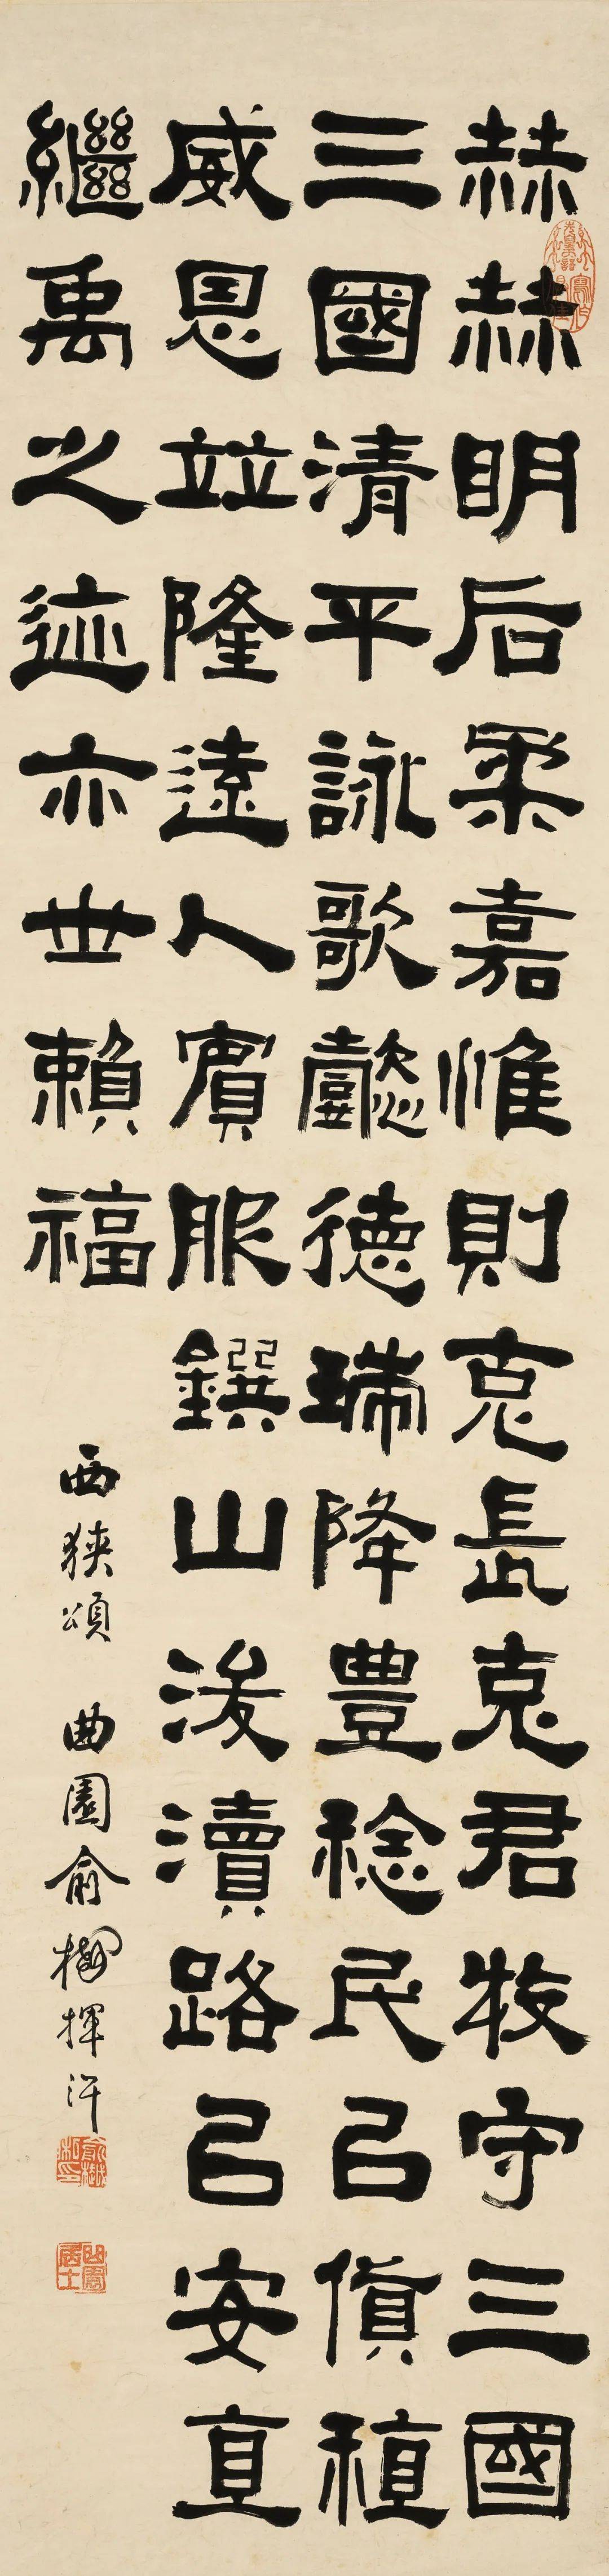 赫赫明后柔嘉惟則克長克君牧守三國
三國清平詠歌懿德瑞降豊稔民㠯貨稙
威恩竝隆遠人賓服鐉山浚瀆路㠯安直
繼禹之迹亦世賴福
西狹頌 曲園俞樾揮汗
俞樾私印
曲園居士